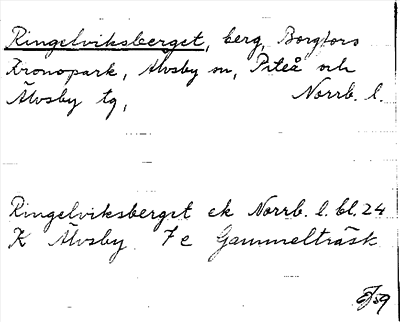 Ringelviksberget, berg, Borgfors
Kronopark, Älvsby sn, Piteå och
Älvsby tg, Norrb. l.
Ringelviksberget ek Norrb. l. bl. 24
K Älvsby 7 e Gammelträsk